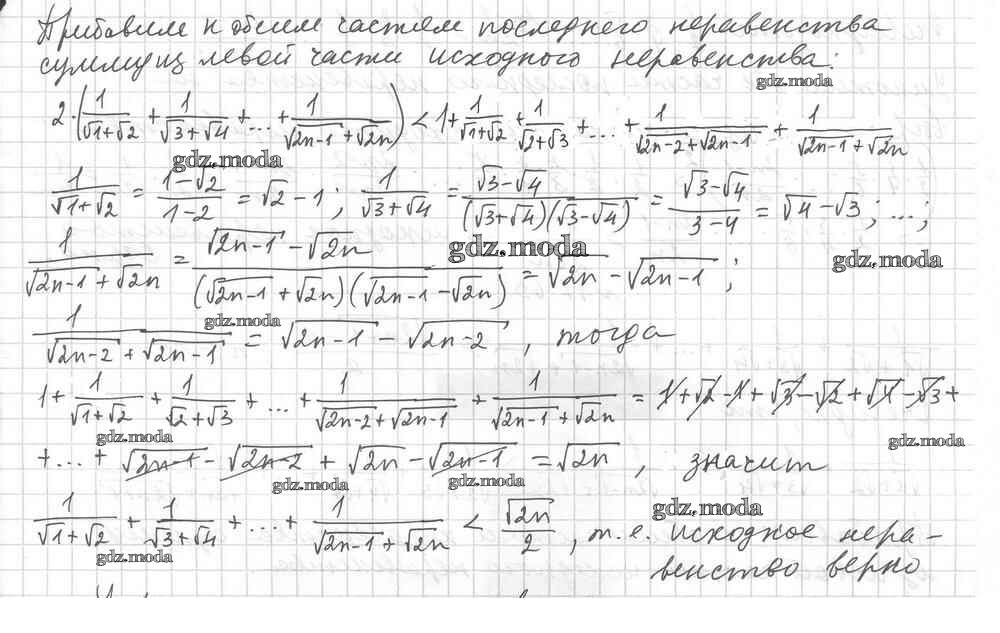 Прибавим к обеим частям последнего неравенства
сумму из левой части исходного неравенства:
gdz.moda
2·(1/(√1+√2) + 1/(√3+√4) + ... + 1/(√2n-1 + √2n)) < 1 + 1/(√1+√2) + 1/(√2+√3) + ... + 1/(√2n-2 + √2n-1) + 1/(√2n-1 + √2n)
gdz.moda
1/(√1+√2) = (1-√2)/(1-2) = √2 - 1; 1/(√3+√4) = (√3-√4)/((√3+√4)(√3-√4)) = (√3-√4)/(3-4) = √4 - √3; ...;
gdz.moda
1/(√2n-1 + √2n) = (√2n-1 - √2n)/((√2n-1 + √2n)(√2n-1 - √2n)) = √2n - √2n-1;
gdz.moda
gdz.moda
1/(√2n-2 + √2n-1) = √2n-1 - √2n-2, тогда
1 + 1/(√1+√2) + 1/(√2+√3) + ... + 1/(√2n-2 + √2n-1) + 1/(√2n-1 + √2n) = 1+√2-1+√3-√2+√4-√3+
gdz.moda
gdz.moda
+...+ √2n-1 - √2n-2 + √2n - √2n-1 = √2n, значит
gdz.moda
gdz.moda
gdz.moda
1/(√1+√2) + 1/(√3+√4) + ... + 1/(√2n-1 + √2n) < √2n/2, т.е. исходное нера-
gdz.moda
венство верно